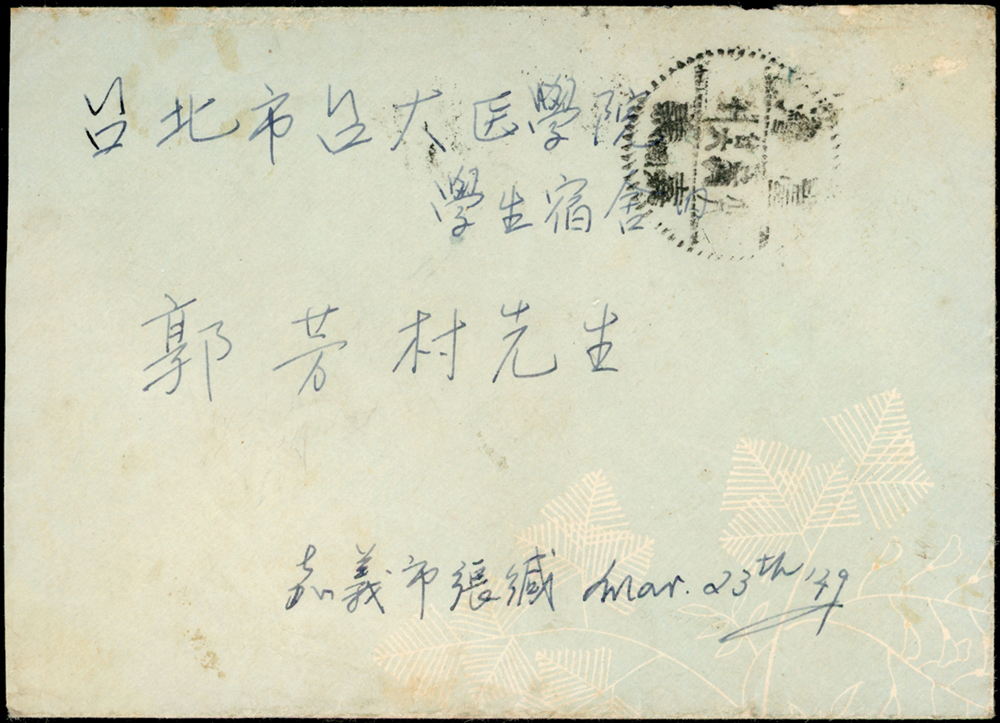 台北市台大医學院
學生宿舍内
郭芳村先生
嘉義市張緘 Mar. 23th '49